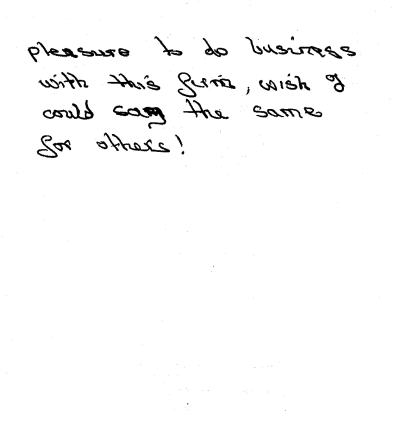 pleasure to do business
with this firm, wish I
could say the same
for others!